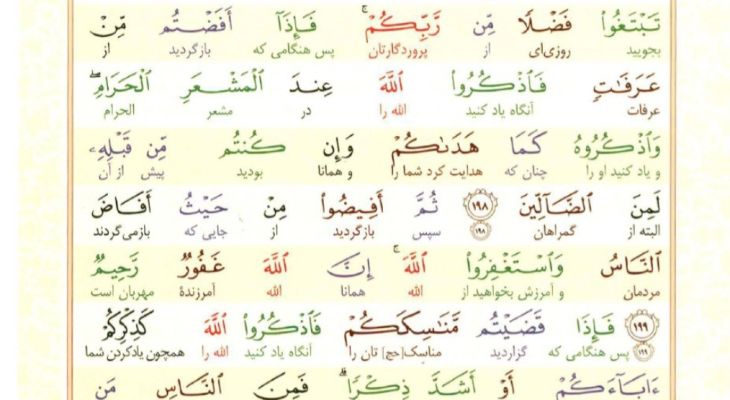 تَبْتَغُوا۟ فَضْلًا مِّن رَّبِّكُمْ ۚ فَإِذَآ أَفَضْتُم مِّنْ
بجویید روزی‌ای از پروردگارتان پس هنگامی که بازگردید از
عَرَفَٰتٍ فَٱذْكُرُوا۟ ٱللَّهَ عِندَ ٱلْمَشْعَرِ ٱلْحَرَامِ ۖ
عرفات آنگاه یاد کنید الله را در مشعر الحرام
وَٱذْكُرُوهُ كَمَا هَدَىٰكُمْ وَإِن كُنتُم مِّن قَبْلِهِۦ
و یاد کنید او را چنان که هدایت کرد شما را و همانا بودید پیش از آن
لَمِنَ ٱلضَّآلِّينَ ۝١٩٨ ثُمَّ أَفِيضُوا۟ مِنْ حَيْثُ أَفَاضَ
البته از گمراهان ۱۹۸ سپس بازگردید از جایی که بازمی‌گردند
ٱلنَّاسُ وَٱسْتَغْفِرُوا۟ ٱللَّهَ ۚ إِنَّ ٱللَّهَ غَفُورٌ رَّحِيمٌ
مردمان و آمرزش بخواهید از الله همانا الله آمرزندهٔ مهربان است
۝١٩٩ فَإِذَا قَضَيْتُم مَّنَٰسِكَكُمْ فَٱذْكُرُوا۟ ٱللَّهَ كَذِكْرِكُمْ
۱۹۹ پس هنگامی که گزاردید مناسک[حج] تان را آنگاه یاد کنید الله را همچون یادکردن شما
ءَابَآءَكُمْ أَوْ أَشَدَّ ذِكْرًا ۗ فَمِنَ ٱلنَّاسِ مَن